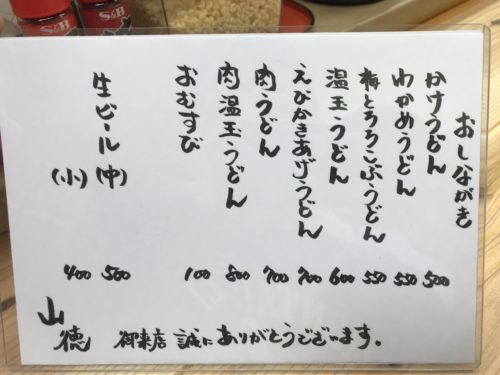 おしながき
かけうどん 500
わかめうどん 550
梅とろろこぶうどん 550
温玉うどん 600
えびかきあげうどん 700
肉うどん 700
肉温玉うどん 800
おむすび 100
生ビール (中) 500
(小) 400
山徳
御来店 誠にありがとうございます。
S&B
S&B